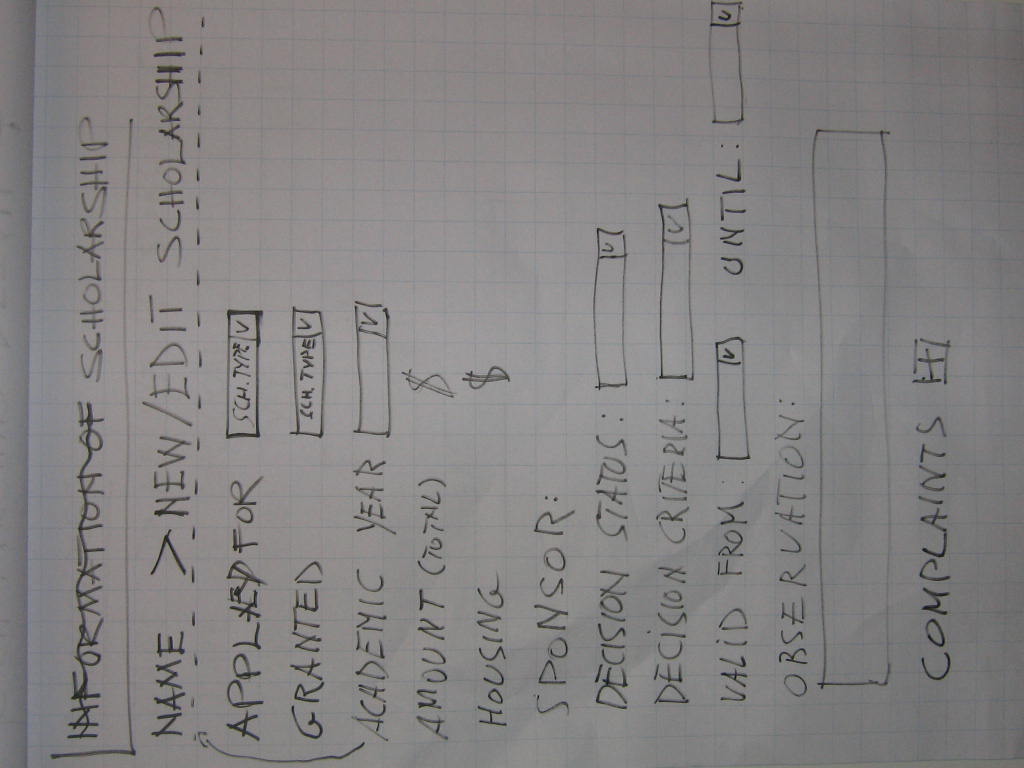 INFORMATION OF SCHOLARSHIP
NAME > NEW/EDIT SCHOLARSHIP
APPLIED FOR SCH. TYPE V
GRANTED SCH. TYPE V
ACADEMIC YEAR V
AMOUNT (TOTAL) $
HOUSING $
SPONSOR:
DECISION STATUS: V
DECISION CRITERIA: V
VALID FROM: V UNTIL: V
OBSERVATION:
COMPLAINTS